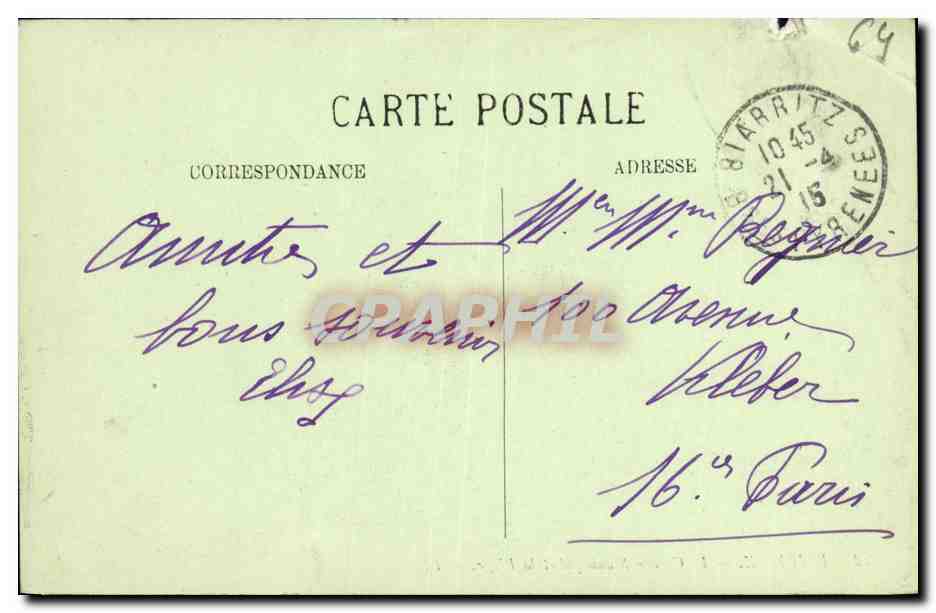 CARTE POSTALE
CORRESPONDANCE
ADRESSE
BIARRITZ
10 45
21 -4
15
64
Amitiés et
bons souvenirs
Mr et Mme Regnier
100 Avenue
Kléber
16e Paris
CPAPHIL